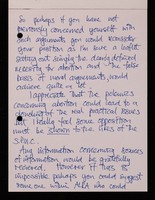 So perhaps if you have not
previously concerned yourself with
such arguments you would reconsider
your position as I'm sure a leaflet
setting out simply the clearly defined
necessity for abortion and the false
basis of moral arguments, would
achieve quite a lot.
I appreciate that the polemics
concerning abortion could lead to a
clouding of the real practical issues
but I really feel some opposition
must be shown to the likes of the
S.P.U.C.
Any information concerning sources
of information would be gratefully
received. However if this is
impossible perhaps you could suggest
some one within ALRA who could